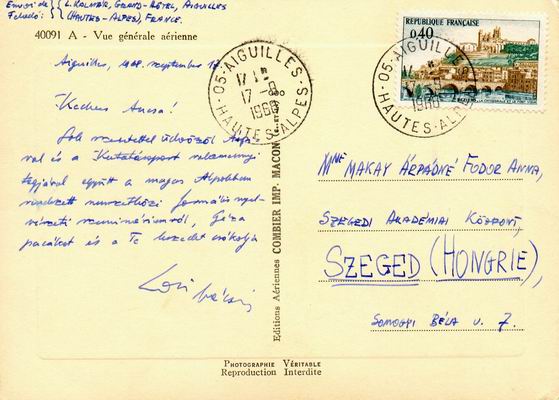 Envoi de } { L. KALMÁR, GRAND-HÔTEL, AIGUILLES
Feladó : } { (HAUTES-ALPES), FRANCE.
40091 A - Vue générale aérienne
Aiguilles, 1968. szeptember 17.
Kedves Anna!
Sok szeretettel üdvözöl Anyá-
val és a Kutatócsoport valamennyi
tagjával együtt a magas Alpokban
rendezett nemzetközi formális nyel-
vészeti szemináriumról, Géza
pacákot és a Te kezedet csókolja
Laci bácsi
05-AIGUILLES
17 -9
1968
HAUTES-ALPES
05-AIGUILLES
17 -9
1968
HAUTES-ALPES
REPUBLIQUE FRANÇAISE
0,40
Editions Aériennes COMBIER IMP. MACON
Mme MAKAY ÁRPÁDNÉ FODOR ANNA,
SZEGEDI AKADÉMIAI KÖZPONT,
SZEGED (HONGRIE),
SOMOGYI BÉLA U. 7.
PHOTOGRAPHIE VÉRITABLE
Reproduction Interdite